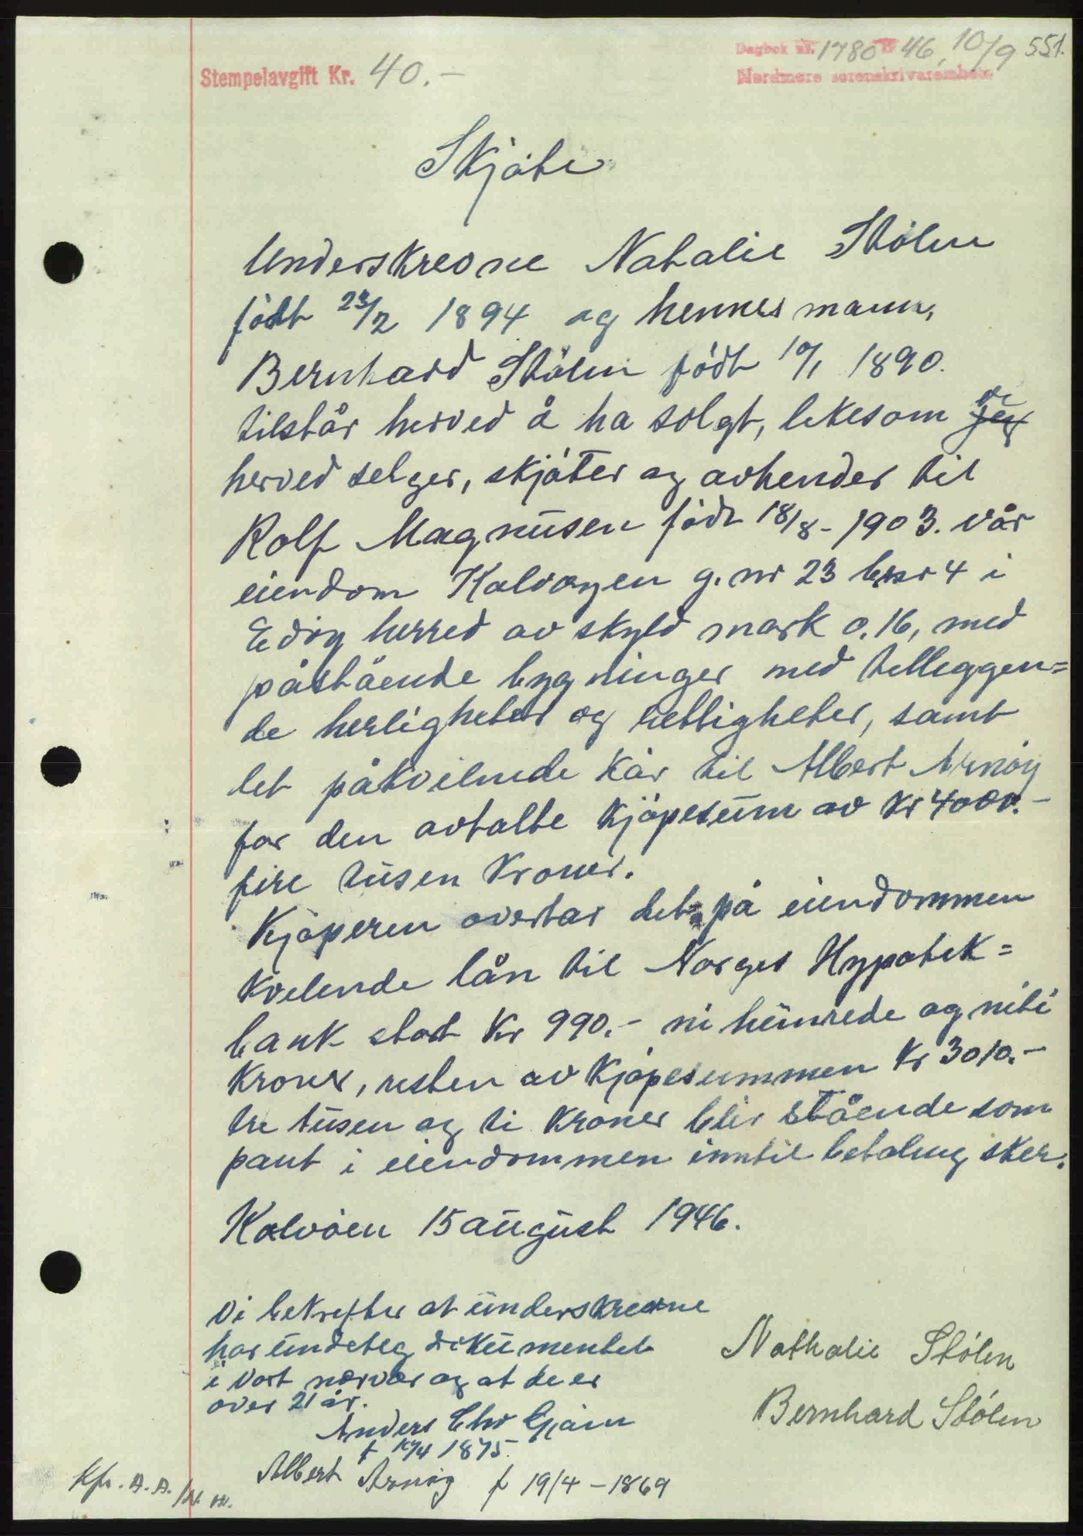 Dagbok nr. 1780 46, 10/9 551.
Stempelavgift Kr. 40.-
Nordmøre sorenskrivarembete
Skjöte
Underskreone Natalie Stölen
födt 23/2 1894 og hennes mann,
Bernhard Stölen födt 10/1 1890.
tilstår herved å ha solgt, likesom vi jeg
herved selger, skjöter og avhender til
Rolf Magnusen född 18/8-1903. vår
eiendom Kalvøyen g.nr 23 br.nr 4 i
Edöy herred av skyld mark 0.16, med
påstående bygninger med tilleggen=
de herligheter og rettigheter, samt
det påkvilende kår til Albert Arnöy
for den avtalte kjöpesum av kr 4000.-
fire tusen kroner.
Kjöperen overtar det på eiendommen
kvelende lån til Norges Hypotek=
bank stort kr 990.- ni hundrede og niti
kroner, resten av kjöpesummen kr 3010.-
tre tusen og ti kroner blir stående som
pant i eiendommen inntil betaling sker.
Kalvöen 15 august 1946.
Vi bekrefter at underskreone
har undeteg dokumentet
i vort nærvær og at de er
over 21 år.
Nathalie Stølen
Bernhard Stölen
Anders Chr Gjäm
f 1875.
Albert Arnöy f 19/4-1869
Kfr. A.A.